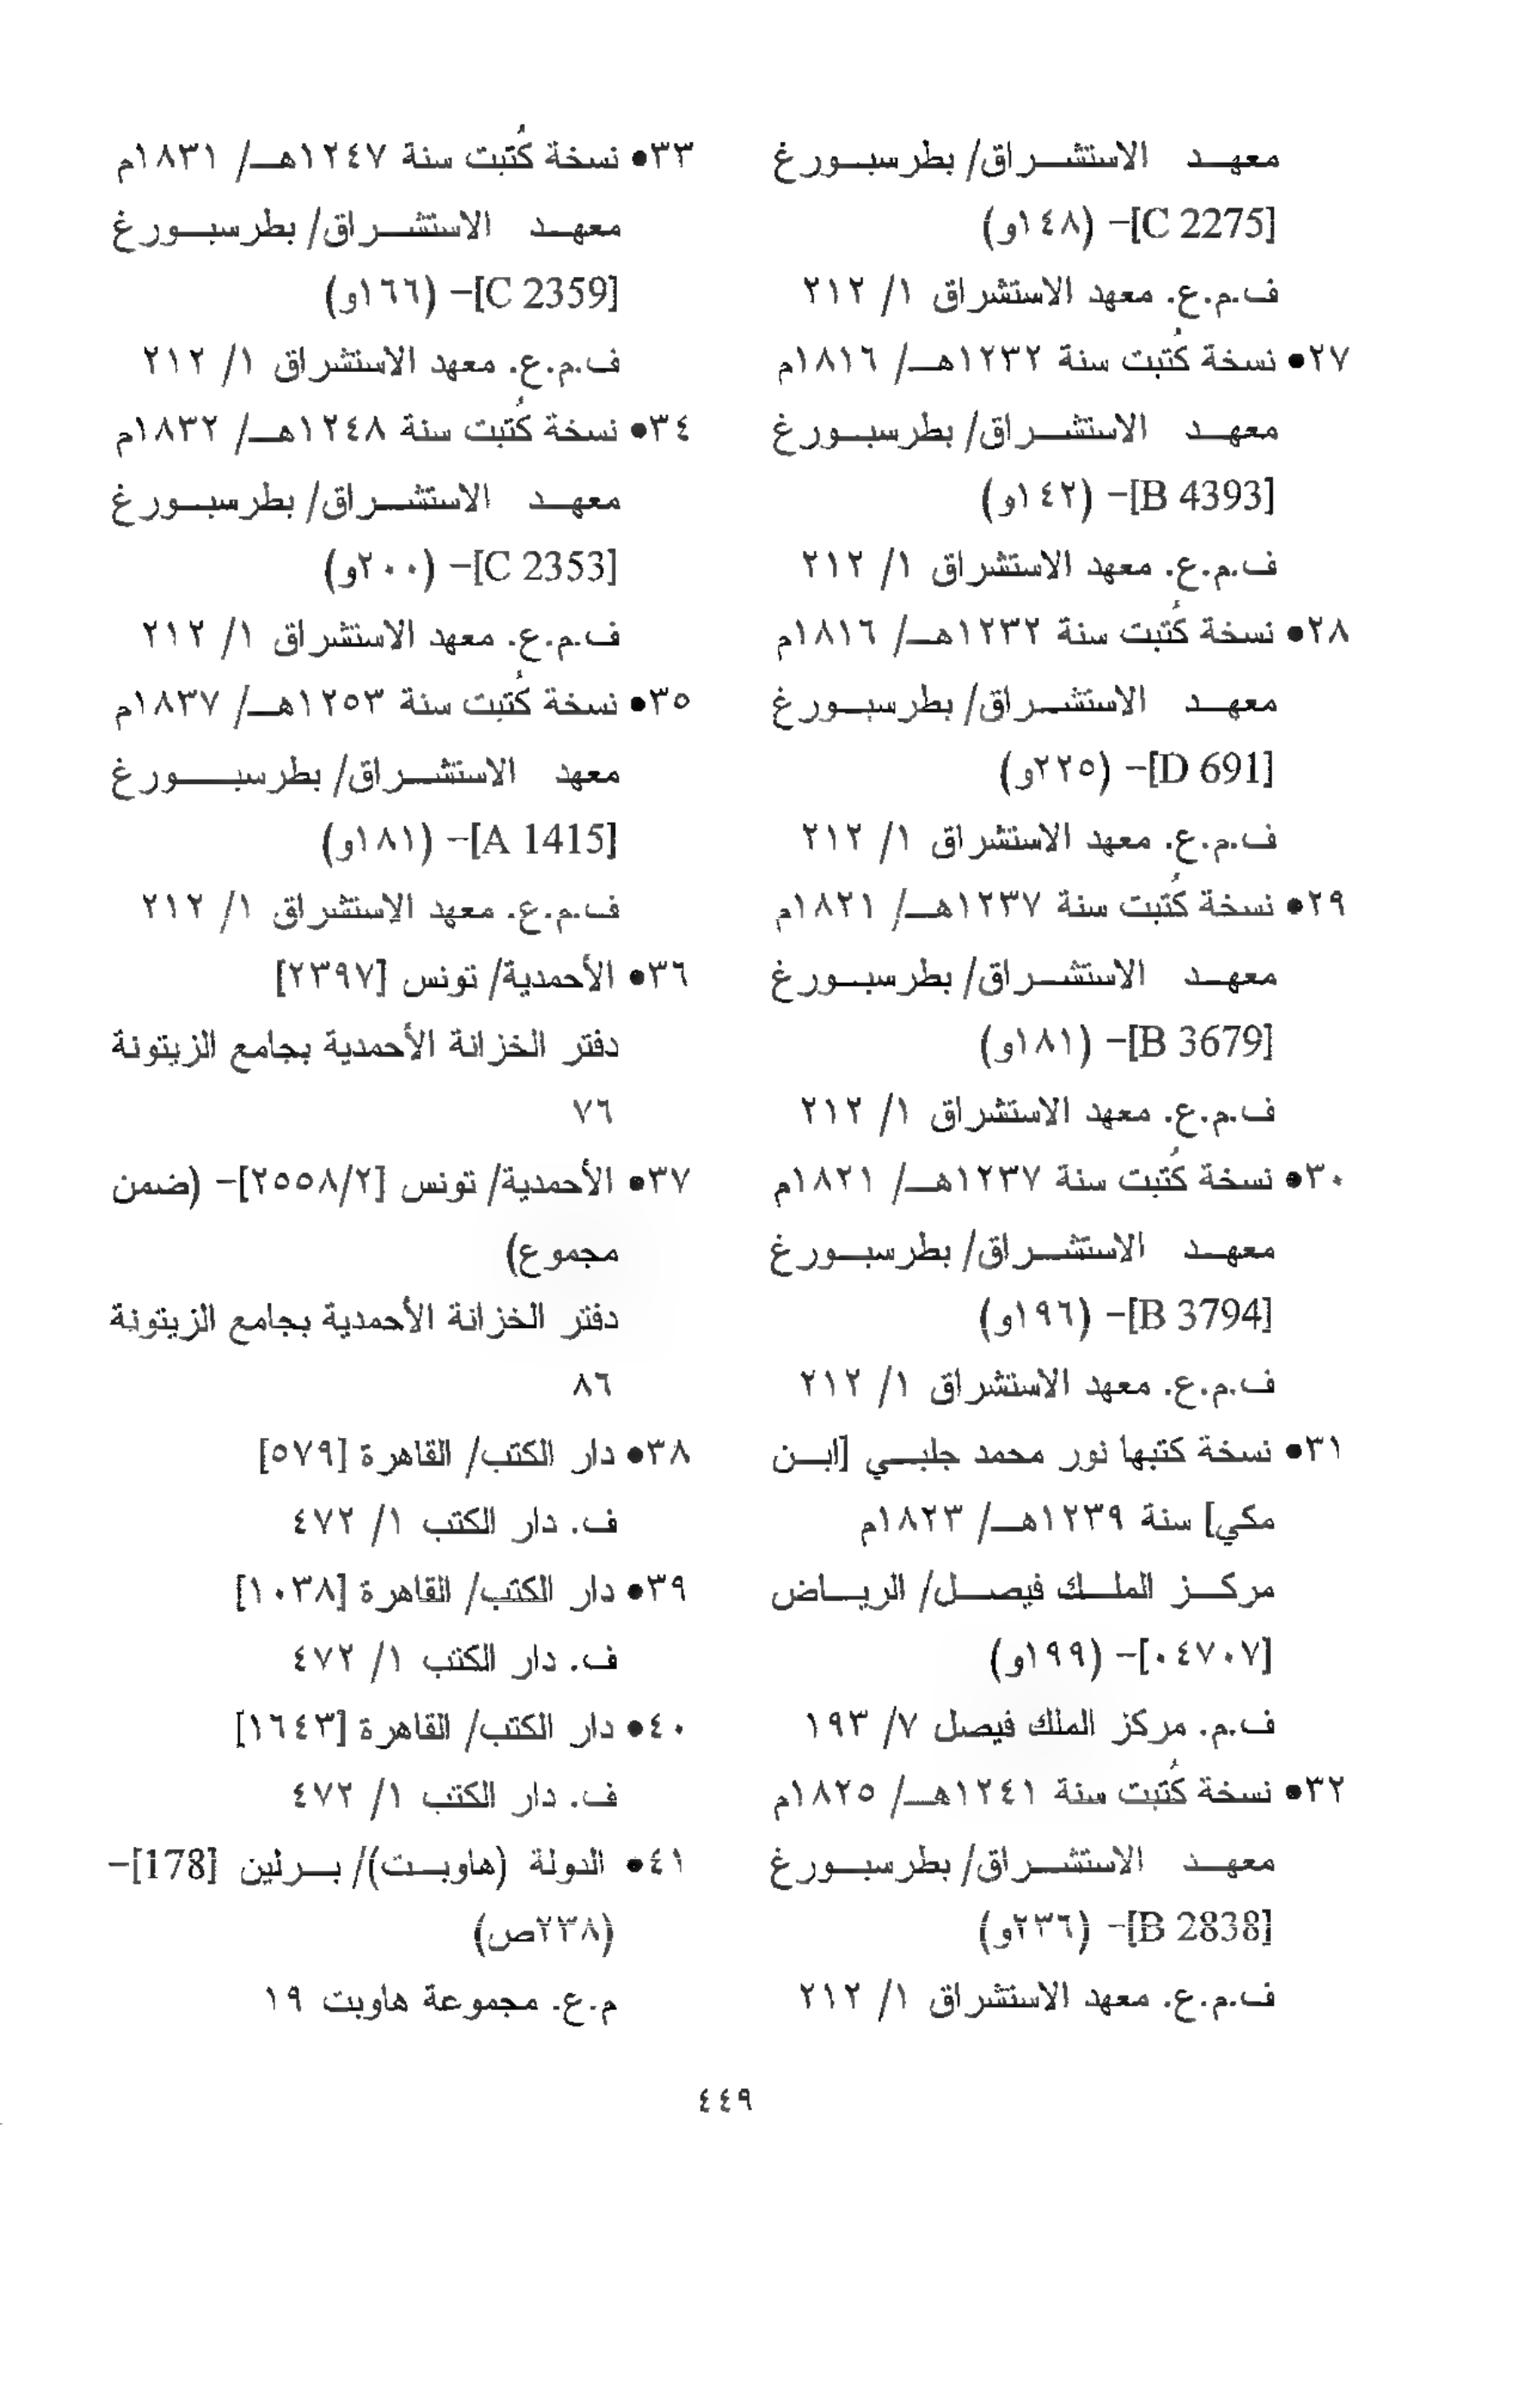 معهد الاستشراق/ بطرسبورغ
[C 2275]– (١٤٨و)
ف.م.ع. معهد الاستشراق ١/ ٢١٢
٢٧• نسخة كُتبت سنة ١٢٣٢هـ/ ١٨١٦م
معهد الاستشراق/ بطرسبورغ
[B 4393]– (١٤٢و)
ف.م.ع. معهد الاستشراق ١/ ٢١٢
٢٨• نسخة كُتبت سنة ١٢٣٢هـ/ ١٨١٦م
معهد الاستشراق/ بطرسبورغ
[D 691]– (٢٢٥و)
ف.م.ع. معهد الاستشراق ١/ ٢١٢
٢٩• نسخة كُتبت سنة ١٢٣٧هـ/ ١٨٢١م
معهد الاستشراق/ بطرسبورغ
[B 3679]– (١٨١و)
ف.م.ع. معهد الاستشراق ١/ ٢١٢
٣٠• نسخة كُتبت سنة ١٢٣٧هـ/ ١٨٢١م
معهد الاستشراق/ بطرسبورغ
[B 3794]– (١٩٦و)
ف.م.ع. معهد الاستشراق ١/ ٢١٢
٣١• نسخة كتبها نور محمد جلبي [ابن
مكي] سنة ١٢٣٩هـ/ ١٨٢٣م
مركز الملك فيصل/ الرياض
[٠٤٧٠٧]– (١٩٩و)
ف.م. مركز الملك فيصل ٧/ ١٩٣
٣٢• نسخة كُتبت سنة ١٢٤١هـ/ ١٨٢٥م
معهد الاستشراق/ بطرسبورغ
[B 2838]– (٢٣٦و)
ف.م.ع. معهد الاستشراق ١/ ٢١٢
٣٣• نسخة كُتبت سنة ١٢٤٧هـ/ ١٨٣١م
معهد الاستشراق/ بطرسبورغ
[C 2359]– (١٦٦و)
ف.م.ع. معهد الاستشراق ١/ ٢١٢
٣٤• نسخة كُتبت سنة ١٢٤٨هـ/ ١٨٣٢م
معهد الاستشراق/ بطرسبورغ
[C 2353]– (٢٠٠و)
ف.م.ع. معهد الاستشراق ١/ ٢١٢
٣٥• نسخة كُتبت سنة ١٢٥٣هـ/ ١٨٣٧م
معهد الاستشراق/ بطرسبورغ
[A 1415]– (١٨١و)
ف.م.ع. معهد الإستشراق ١/ ٢١٢
٣٦• الأحمدية/ تونس [٢٣٩٧]
دفتر الخزانة الأحمدية بجامع الزيتونة
٧٦
٣٧• الأحمدية/ تونس [٢٥٥٨/٢]– (ضمن
مجموع)
دفتر الخزانة الأحمدية بجامع الزيتونة
٨٦
٣٨• دار الكتب/ القاهرة [٥٧٩]
ف. دار الكتب ١/ ٤٧٢
٣٩• دار الكتب/ القاهرة [١٠٣٨]
ف. دار الكتب ١/ ٤٧٢
٤٠• دار الكتب/ القاهرة [١٦٤٣]
ف. دار الكتب ١/ ٤٧٢
٤١• الدولة (هاوبت)/ برلين [178]–
(٢٣٨ص)
م.ع. مجموعة هاوبت ١٩
٤٤٩